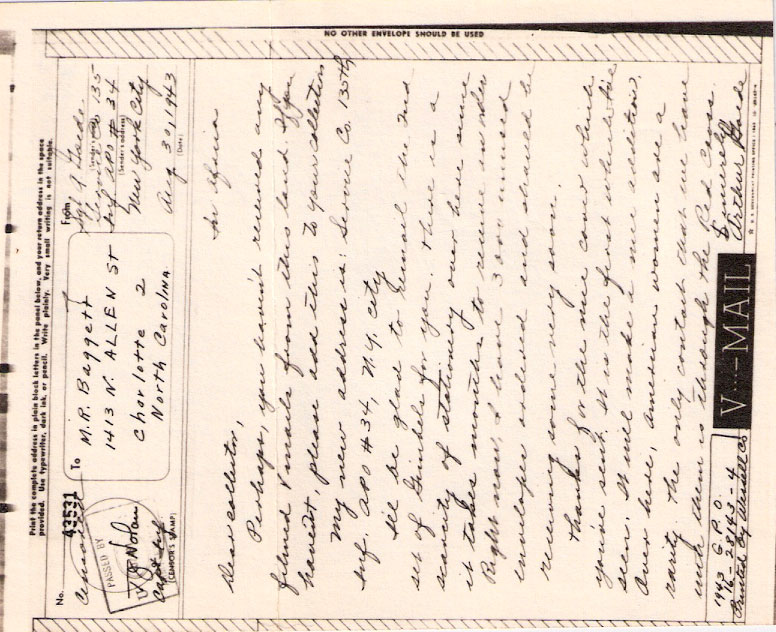 Print the complete address in plain block letters in the panel below, and your return address in the space
provided. Use typewriter, dark ink, or pencil. Write plainly. Very small writing is not suitable.
No.
43531
To
M.R. Baggett
1413 N. ALLEN ST
Charlotte 2
North Carolina
From
Co 135
Inf APO # 34
(Sender's address)
New York City
Aug 30, 1943
(Date)
PASSED BY
Nolan
Capt Inf
(CENSOR'S STAMP)
Dear collector,
Perhaps, you haven't received any
filmed V mails from this land. If you
havent, please add this to you collection
My new address is: Service Co. 135th
Inf. APO #34, N.Y. City
Ill be glad to the 2nd
set of for you. There is a
scarcity of stationery over here since
it takes months to reorder
Right now, I have 300
envelopes ordered and should be
receiving some very soon.
Thanks for the nice cover which
you've sent. It is the first which I've
seen. It will make a nice addition.
Over here, American women are a
rarity. The only contact that we have
with them is through the Red Cross.
Sincerely
Arthur
V···—MAIL
1943 G.P.O.
16-28143-4
Printed By
NO OTHER ENVELOPE SHOULD BE USED